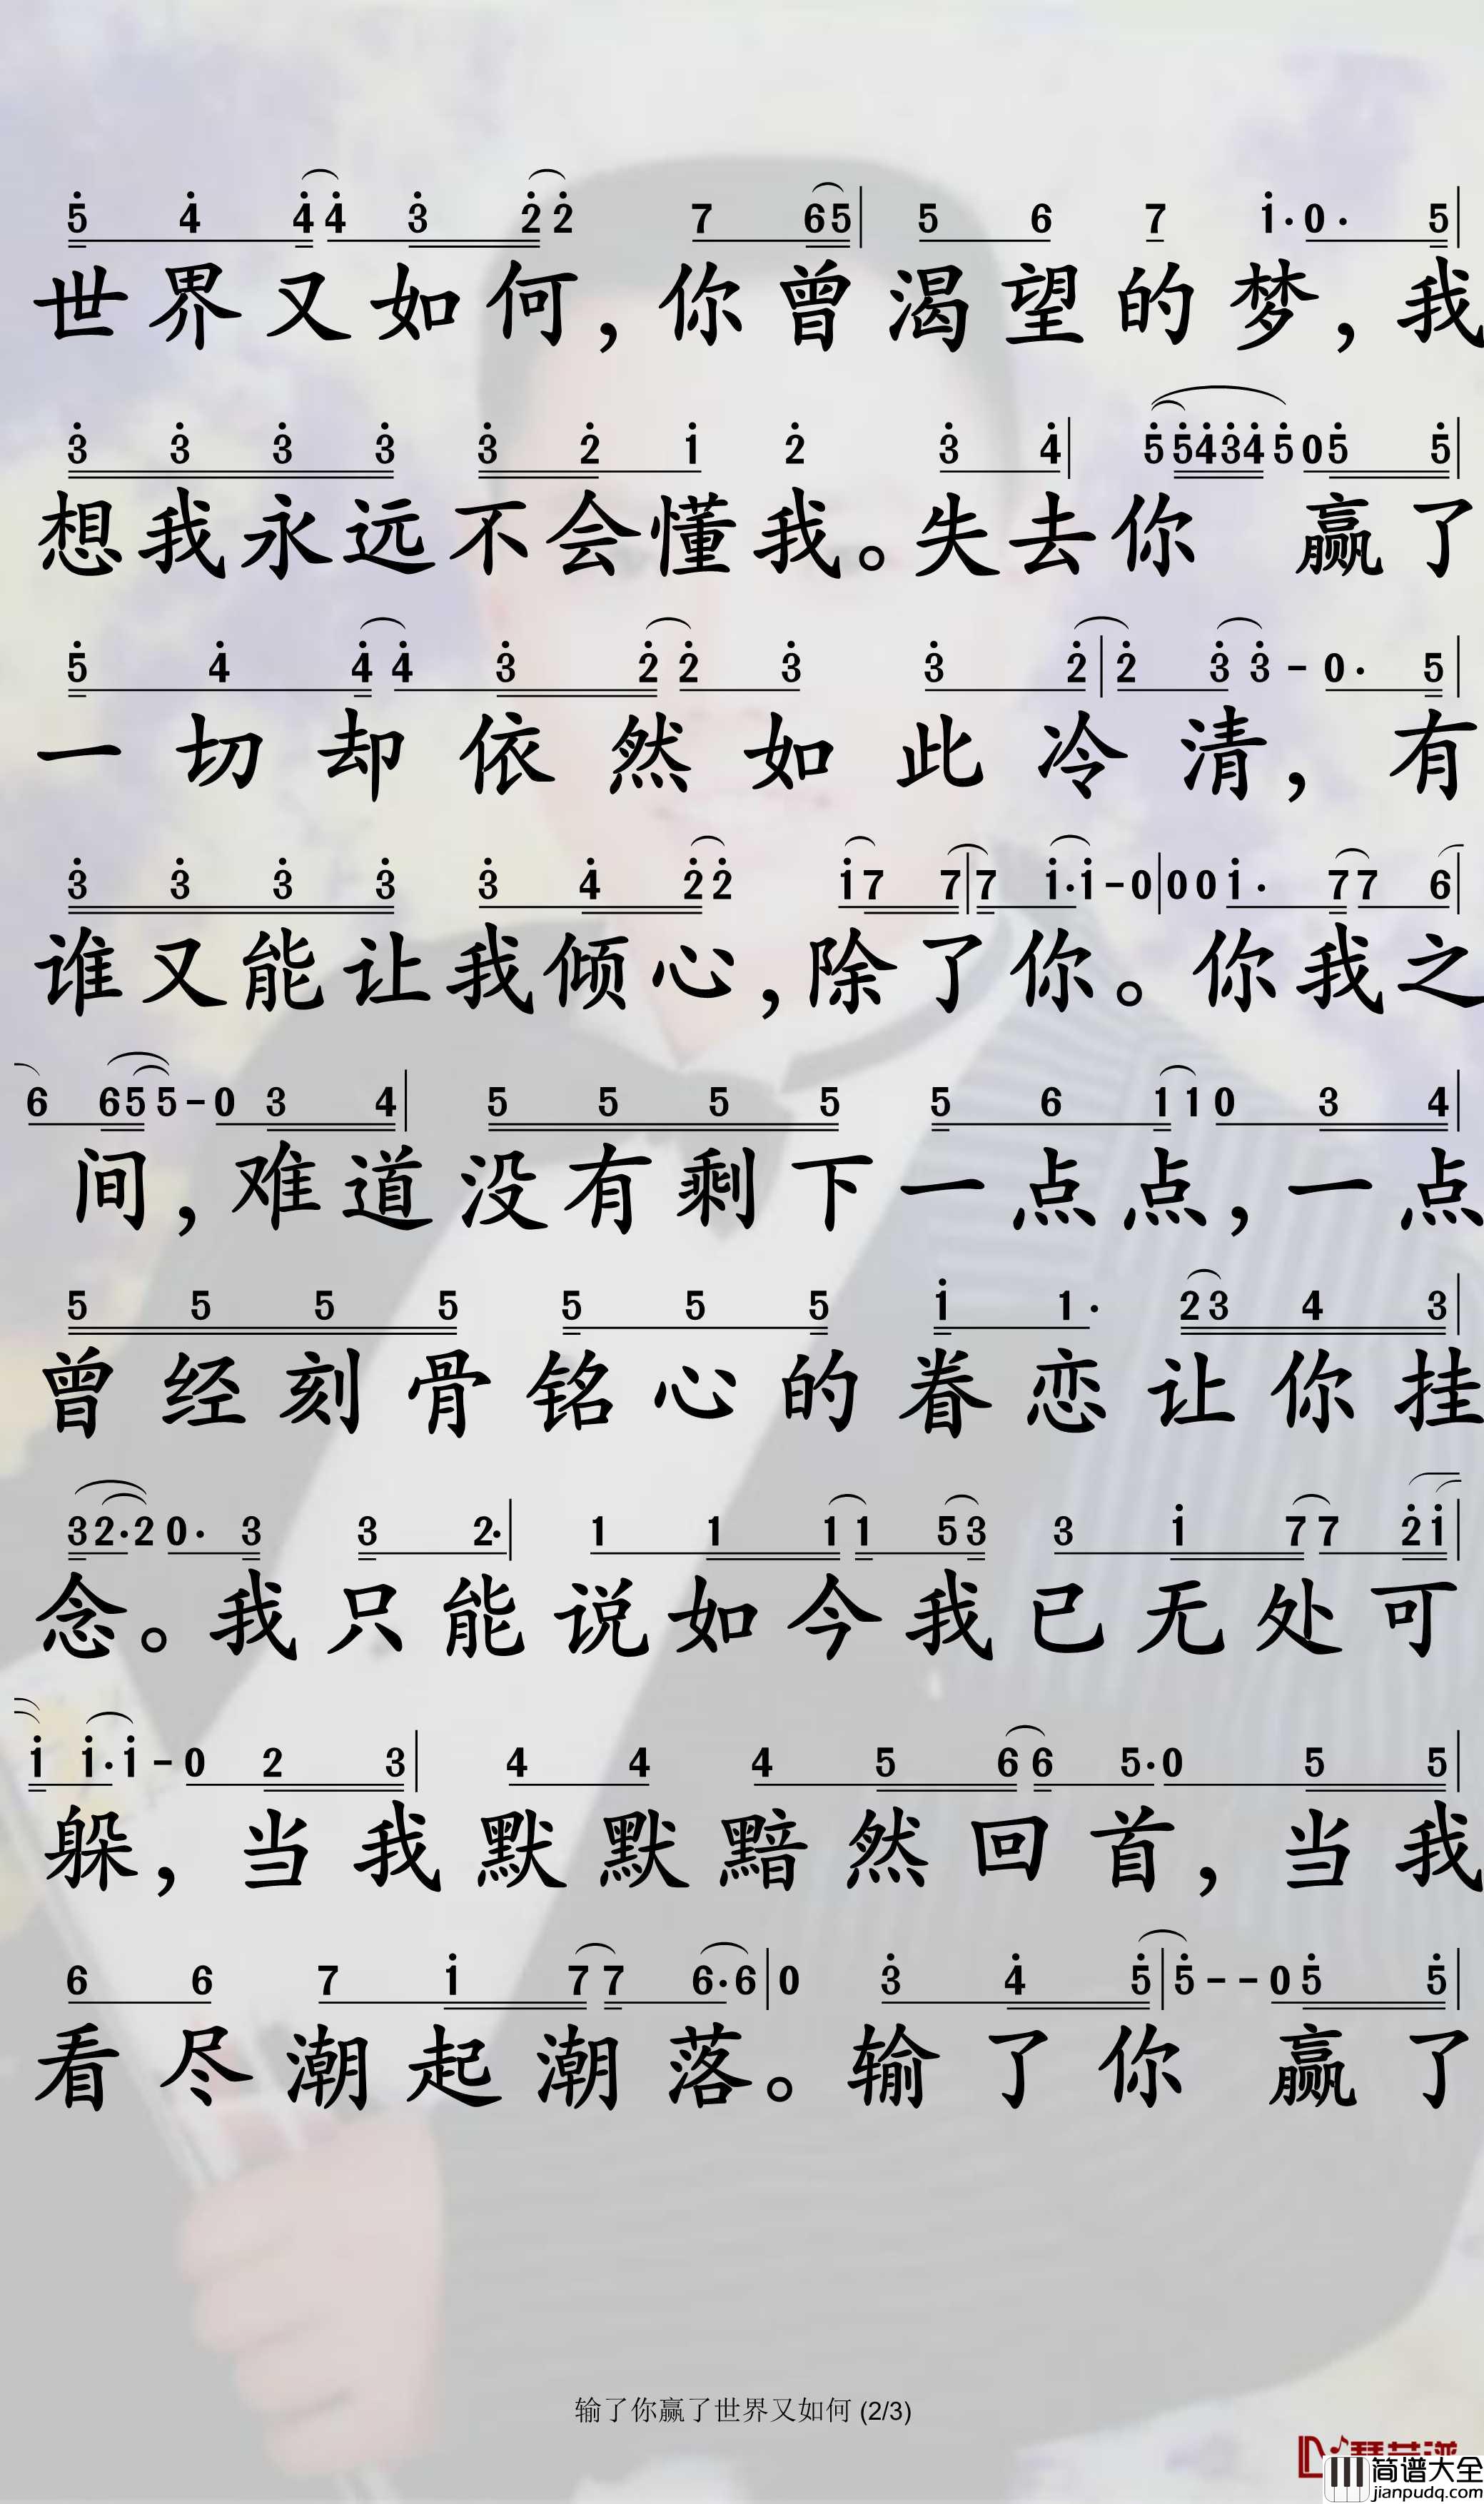 5 4 4 4 3 2 2 7 6 5 | 5 6 7 1· 0· 5 |
世界又如何，你曾渴望的梦，我
3 3 3 3 3 2 1 2 3 4 | 5 5 4 3 4 5 0 5 5 |
想我永远不会懂我。失去你 赢了
5 4 4 4 3 2 2 3 3 2 | 2 3 3 - 0· 5 |
一切却依然如此冷清，有
3 3 3 3 3 4 2 2 1 7 7 | 7 1· 1 - 0 | 0 0 1· 7 7 6 |
谁又能让我倾心，除了你。你我之
6 6 5 5 - 0 3 4 | 5 5 5 5 5 6 1 1 0 3 4 |
间，难道没有剩下一点点，一点
5 5 5 5 5 5 5 1 1· 2 3 4 3 |
曾经刻骨铭心的眷恋让你挂
3 2· 2 0· 3 3 2· | 1 1 1 1 5 3 3 1 7 7 2 1 |
念。我只能说如今我已无处可
1 1· 1 - 0 2 3 | 4 4 4 5 6 6 5· 0 5 5 |
躲，当我默默黯然回首，当我
6 6 7 1 7 7 6· 6 | 0 3 4 5 | 5 - - 0 5 5 |
看尽潮起潮落。输了你 赢了
输了你赢了世界又如何 (2/3)
简谱大全
jianpudq.com